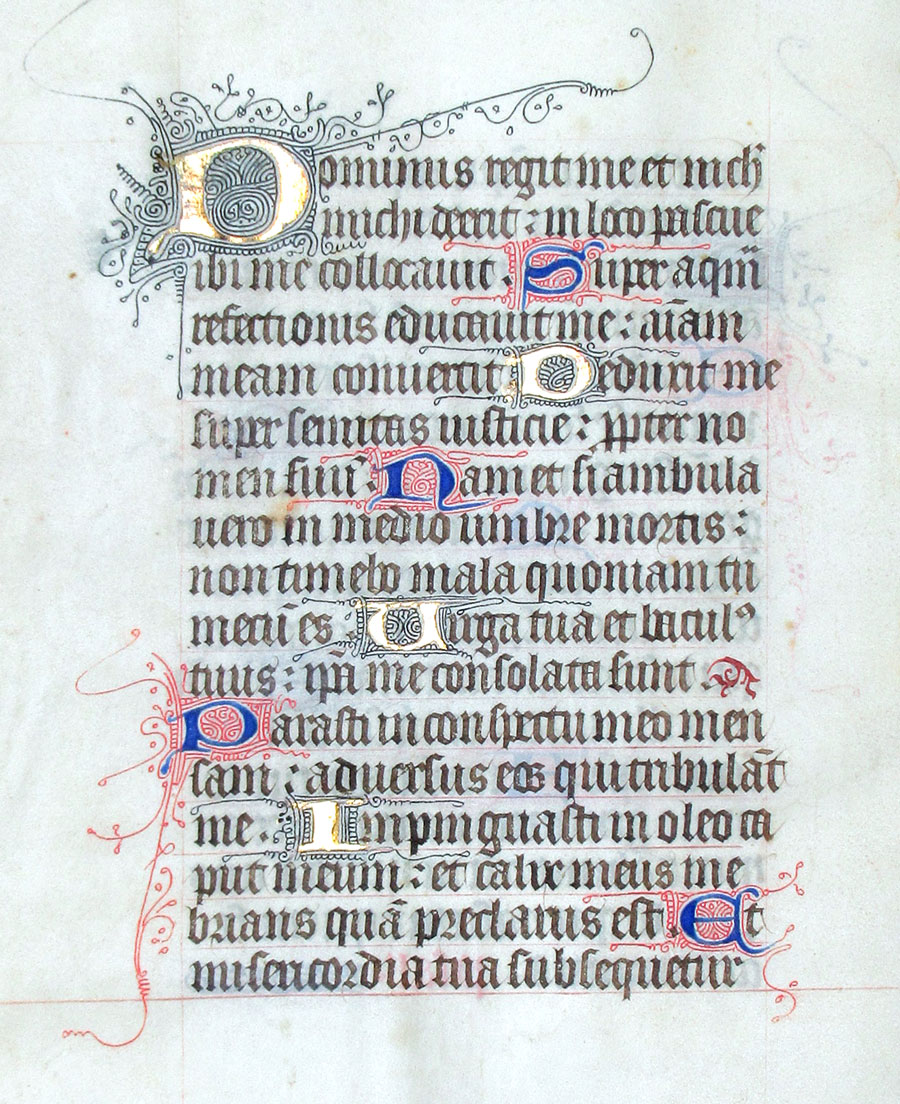 Dominus regit me et nich̄
michi deerit : in loco pascue
ibi me collocauit . Super aqm̄
refectionis educauit me : aīam
meam conuertit . Deduxit me
super semitas iusticie : ꝓpter no
men suū . Nam et si ambula
uero in medio umbre mortis :
non timebo mala quoniam tu
mecū es . Uirga tua et baculꝰ
tuus : ip̄a me consolata sunt
Parasti in conspectu meo men
sam : aduersus eos qui tribulāt
me . Inpinguasti in oleo ca
put meum : et calix meus ine
brians quā preclarus est . Et
misericordia tua subsequetur